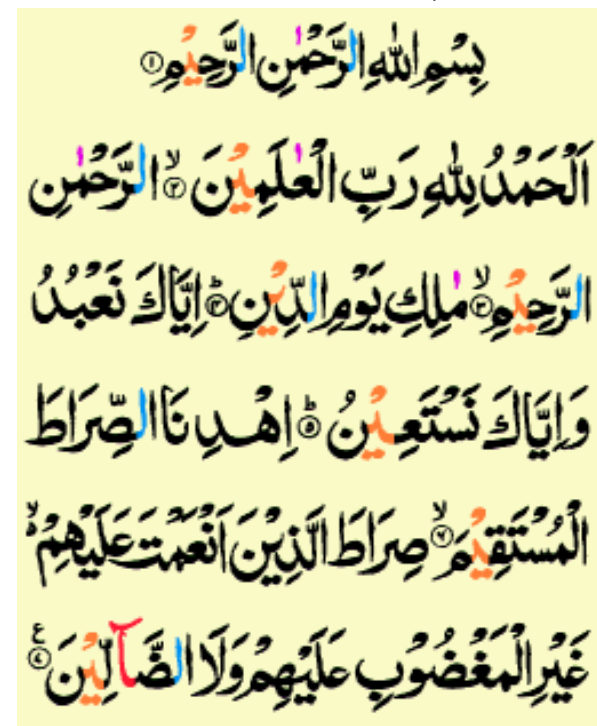 بِسْمِ اللهِ الرَّحْمٰنِ الرَّحِيْمِ ①
اَلْحَمْدُ لِلّٰهِ رَبِّ الْعٰلَمِيْنَ ۙ② الرَّحْمٰنِ
الرَّحِيْمِ ۙ③ مٰلِكِ يَوْمِ الدِّيْنِ ؕ④ اِيَّاكَ نَعْبُدُ
وَاِيَّاكَ نَسْتَعِيْنُ ؕ⑤ اِهْدِنَا الصِّرَاطَ
الْمُسْتَقِيْمَ ۙ صِرَاطَ الَّذِيْنَ اَنْعَمْتَ عَلَيْهِمْ ۙ
غَيْرِ الْمَغْضُوْبِ عَلَيْهِمْ وَلَا الضَّآلِّيْنَ